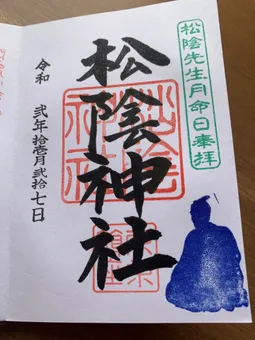 松陰先生月命日奉拝
松陰神社
令和 弐年拾壱月弐拾七日